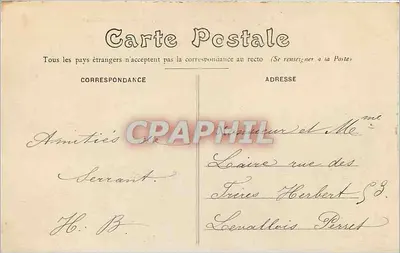 Carte Postale
Tous les pays étrangers n'acceptent pas la correspondance au recto (Se renseigner a la Poste)
CORRESPONDANCE
ADRESSE
CPAPHIL
Amitiés de
Serrant.
H. B.
Monsieur et Mme
Laire rue des
Frères Herbert 53
Levallois Perret